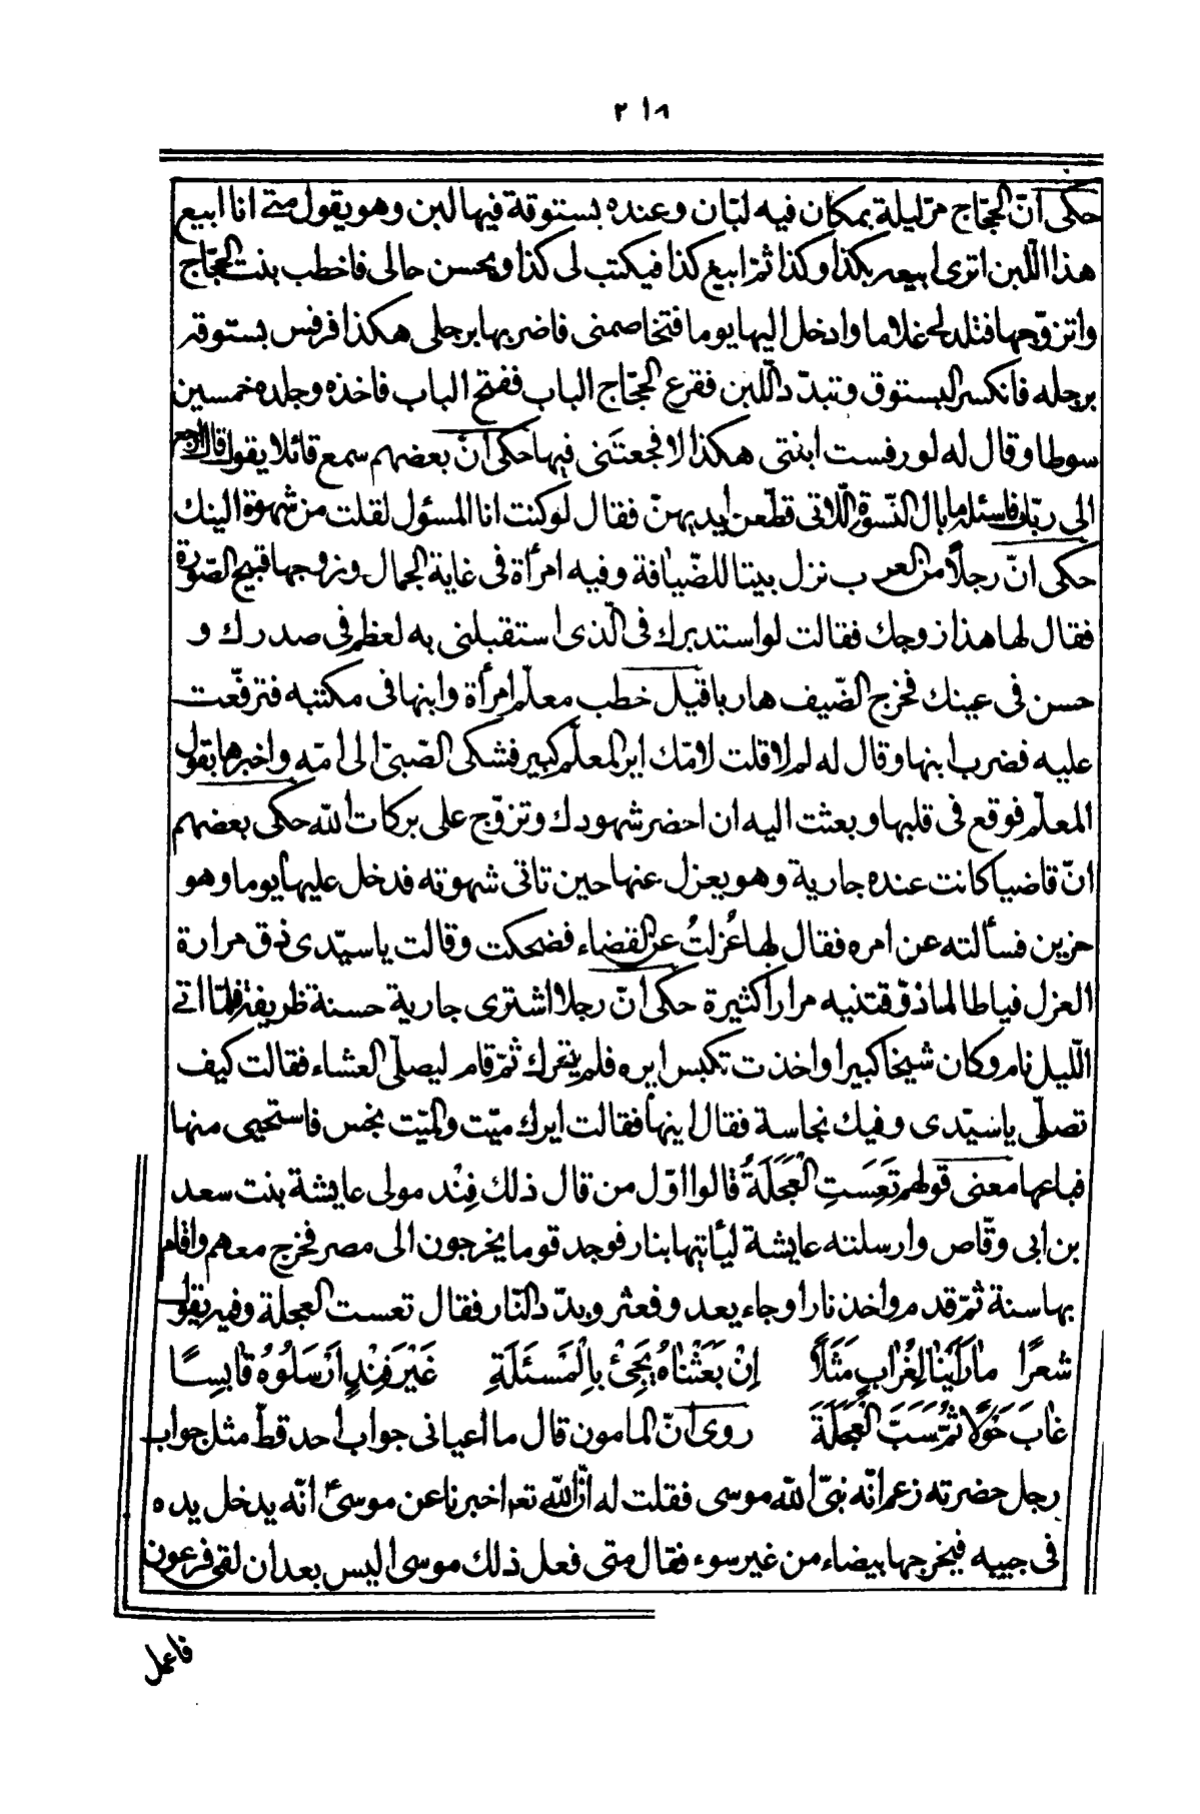 ٢١٨
حكى انّ الحجّاج مرّ ليلة بمكان فيه لبّان وعنده بستوقة فيها لبن وهو يقول متى انا ابيع
هذا اللّبن اترى ابيعه بكذا وكذا ثمّ ابيع كذا فيكتب لى كذا ويحسن حالى فاخطب بنت الحجّاج
واتزوّجها فتلد لى غلاما وادخل اليها يوما فتخاصمنى فاضربها برجلى هكذا فرفس بستوقه
برجله فانكسر البستوق وتبدّد اللّبن فقرع الحجّاج الباب ففتح الباب فاخذه وجلده خمسين
سوطا وقال له لو رفست ابنتى هكذا لا فجعتَنى فيها حكى انّ بعضهم سمع قائلا يقول قال ارجع
الى ربّك فاسئله ما بال النّسوة اللّاتى قطّعن ايديهنّ فقال لو كنت انا المسئول لقلت من شهوة النيك
حكى انّ رجلاً من العرب نزل بيتا للضّيافة وفيه امرأة فى غاية الجمال وزوجها قبيح الصّورة
فقال لها هذا زوجك فقالت لو استدبرك فى الّذى استقبلنى به لعظم فى صدرك و
حسن فى عينك فخرج الضّيف هاربا قيل خطب معلّم امرأة وابنها فى مكتبه فترفّعت
عليه فضرب ابنها وقال له لم لا قلت لامّك اير المعلّم كبير فشكى الصّبىّ الى امّه واخبرها بقول
المعلّم فوقع فى قلبها وبعثت اليه ان احضر شهودك وتزوّج على بركات اللّه حكى بعضهم
انّ قاضيا كانت عنده جارية وهو يعزل عنها حين تاتى شهوته فدخل عليها يوما وهو
حزين فسألته عن امره فقال لها عُزلتُ عن القضاء فضحكت وقالت يا سيّدى ذق مرارة
العزل فياطالما ذوّقتنيه مراراً كثيرة حكى انّ رجلا اشترى جارية حسنة ظريفة فلمّا اتى
اللّيل نام وكان شيخا كبيرا واخذت تكبس ايره فلم يتحرك ثمّ قام ليصلّى العشاء فقالت كيف
تصلّى يا سيّدى وفيك نجاسة فقال اينها فقالت ايرك ميّت والميّت نجس فاستحيى منها
فباعها معنى قولهم تَعِسَتِ الْعَجَلَةُ قالوا اوّل من قال ذلك فِنْد مولى عايشة بنت سعد
بن ابى وقّاص وارسلته عايشة ليأتيها بنار فوجد قوما يخرجون الى مصر فخرج معهم واقام
بها سنة ثمّ قدم واخذ نارا وجاء يعدو فعثر وبدّد النّار فقال تعست العجلة وفيه يقول
شعرًا مارَاَيْنا لِغُرابٍ مَثَلًا اِنْ بَعَثْناهُ يَجِئْ بِالْمَسئَلَةِ غَيْرَ فِنْدٍ اَرْسَلُوُهُ قابِسًا
غابَ حَوْلًا ثُمَّ سَبَّ الْعَجَلَةَ روى انّ المامون قال ما اعيانى جواب احد قطّ مثل جواب
رجل حضرته زعم انّه نبىّ اللّه موسى فقلت له انّ اللّه تعم اخبرنا عن موسى انّه يدخل يده
فى جيبه فيخرجها بيضاء من غير سوء فقال متى فعل ذلك موسى اليس بعد ان لقى فرعون
فاعمل